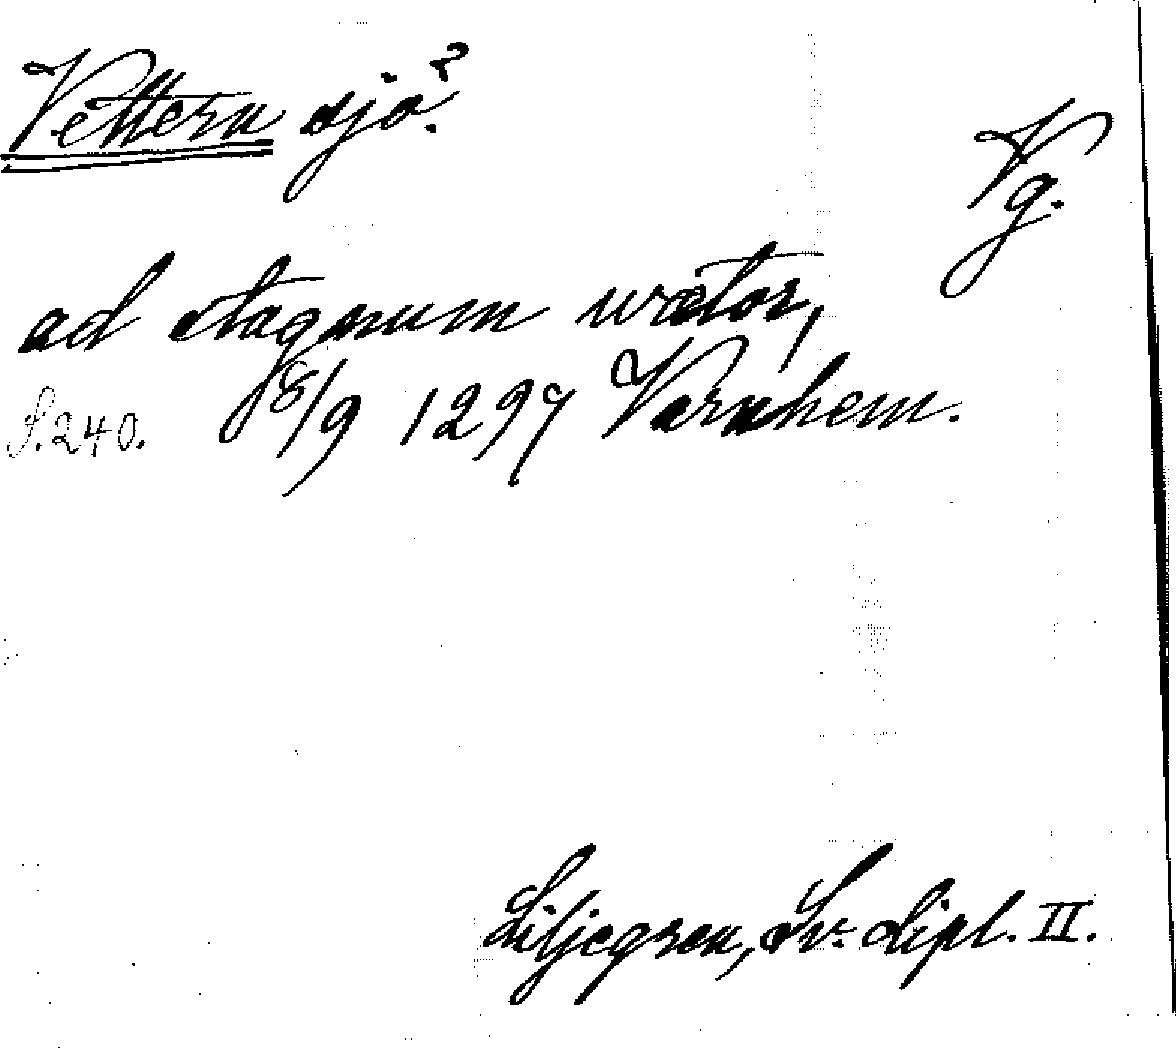 Vettern sjö?
Vg.
ad stagnum wætor,
S. 240. 18/9 1297 Varnhem.
Liljegren, Sv. dipl. II.